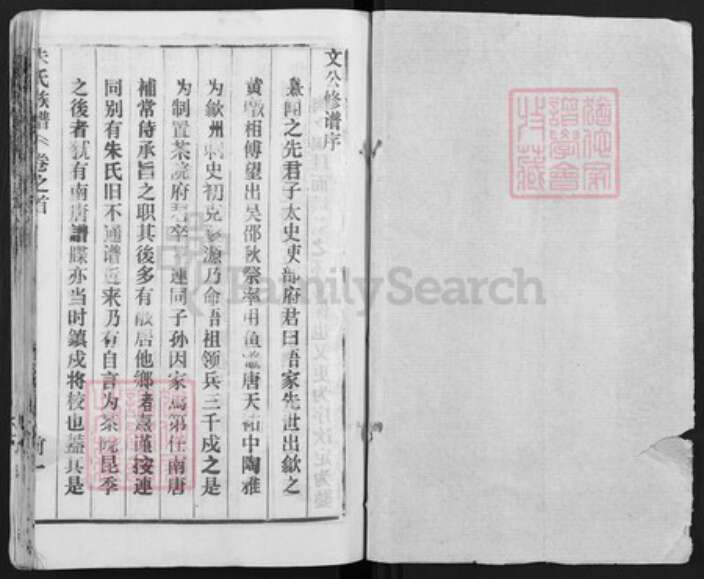 文公修谱序
熹闻之先君子太史吏部府君曰吾家先世出歙之
黄墩相傅望出吴郡秋祭率用鱼 唐天祐中陶雅
为歙州 史初克 源乃命吾祖领兵三千戍之是
为制置茶院府君卒 連同子孙因家焉第 仕南唐
補常侍承旨之职其後多有散居他鄉者熹谨按連
同别有朱氏旧不通谱近来乃有自言为茶院昆季
之後者犹有南唐譜牒亦当时鎮戍将校也蓋其是
朱氏族谱 卷之首
FamilySearch